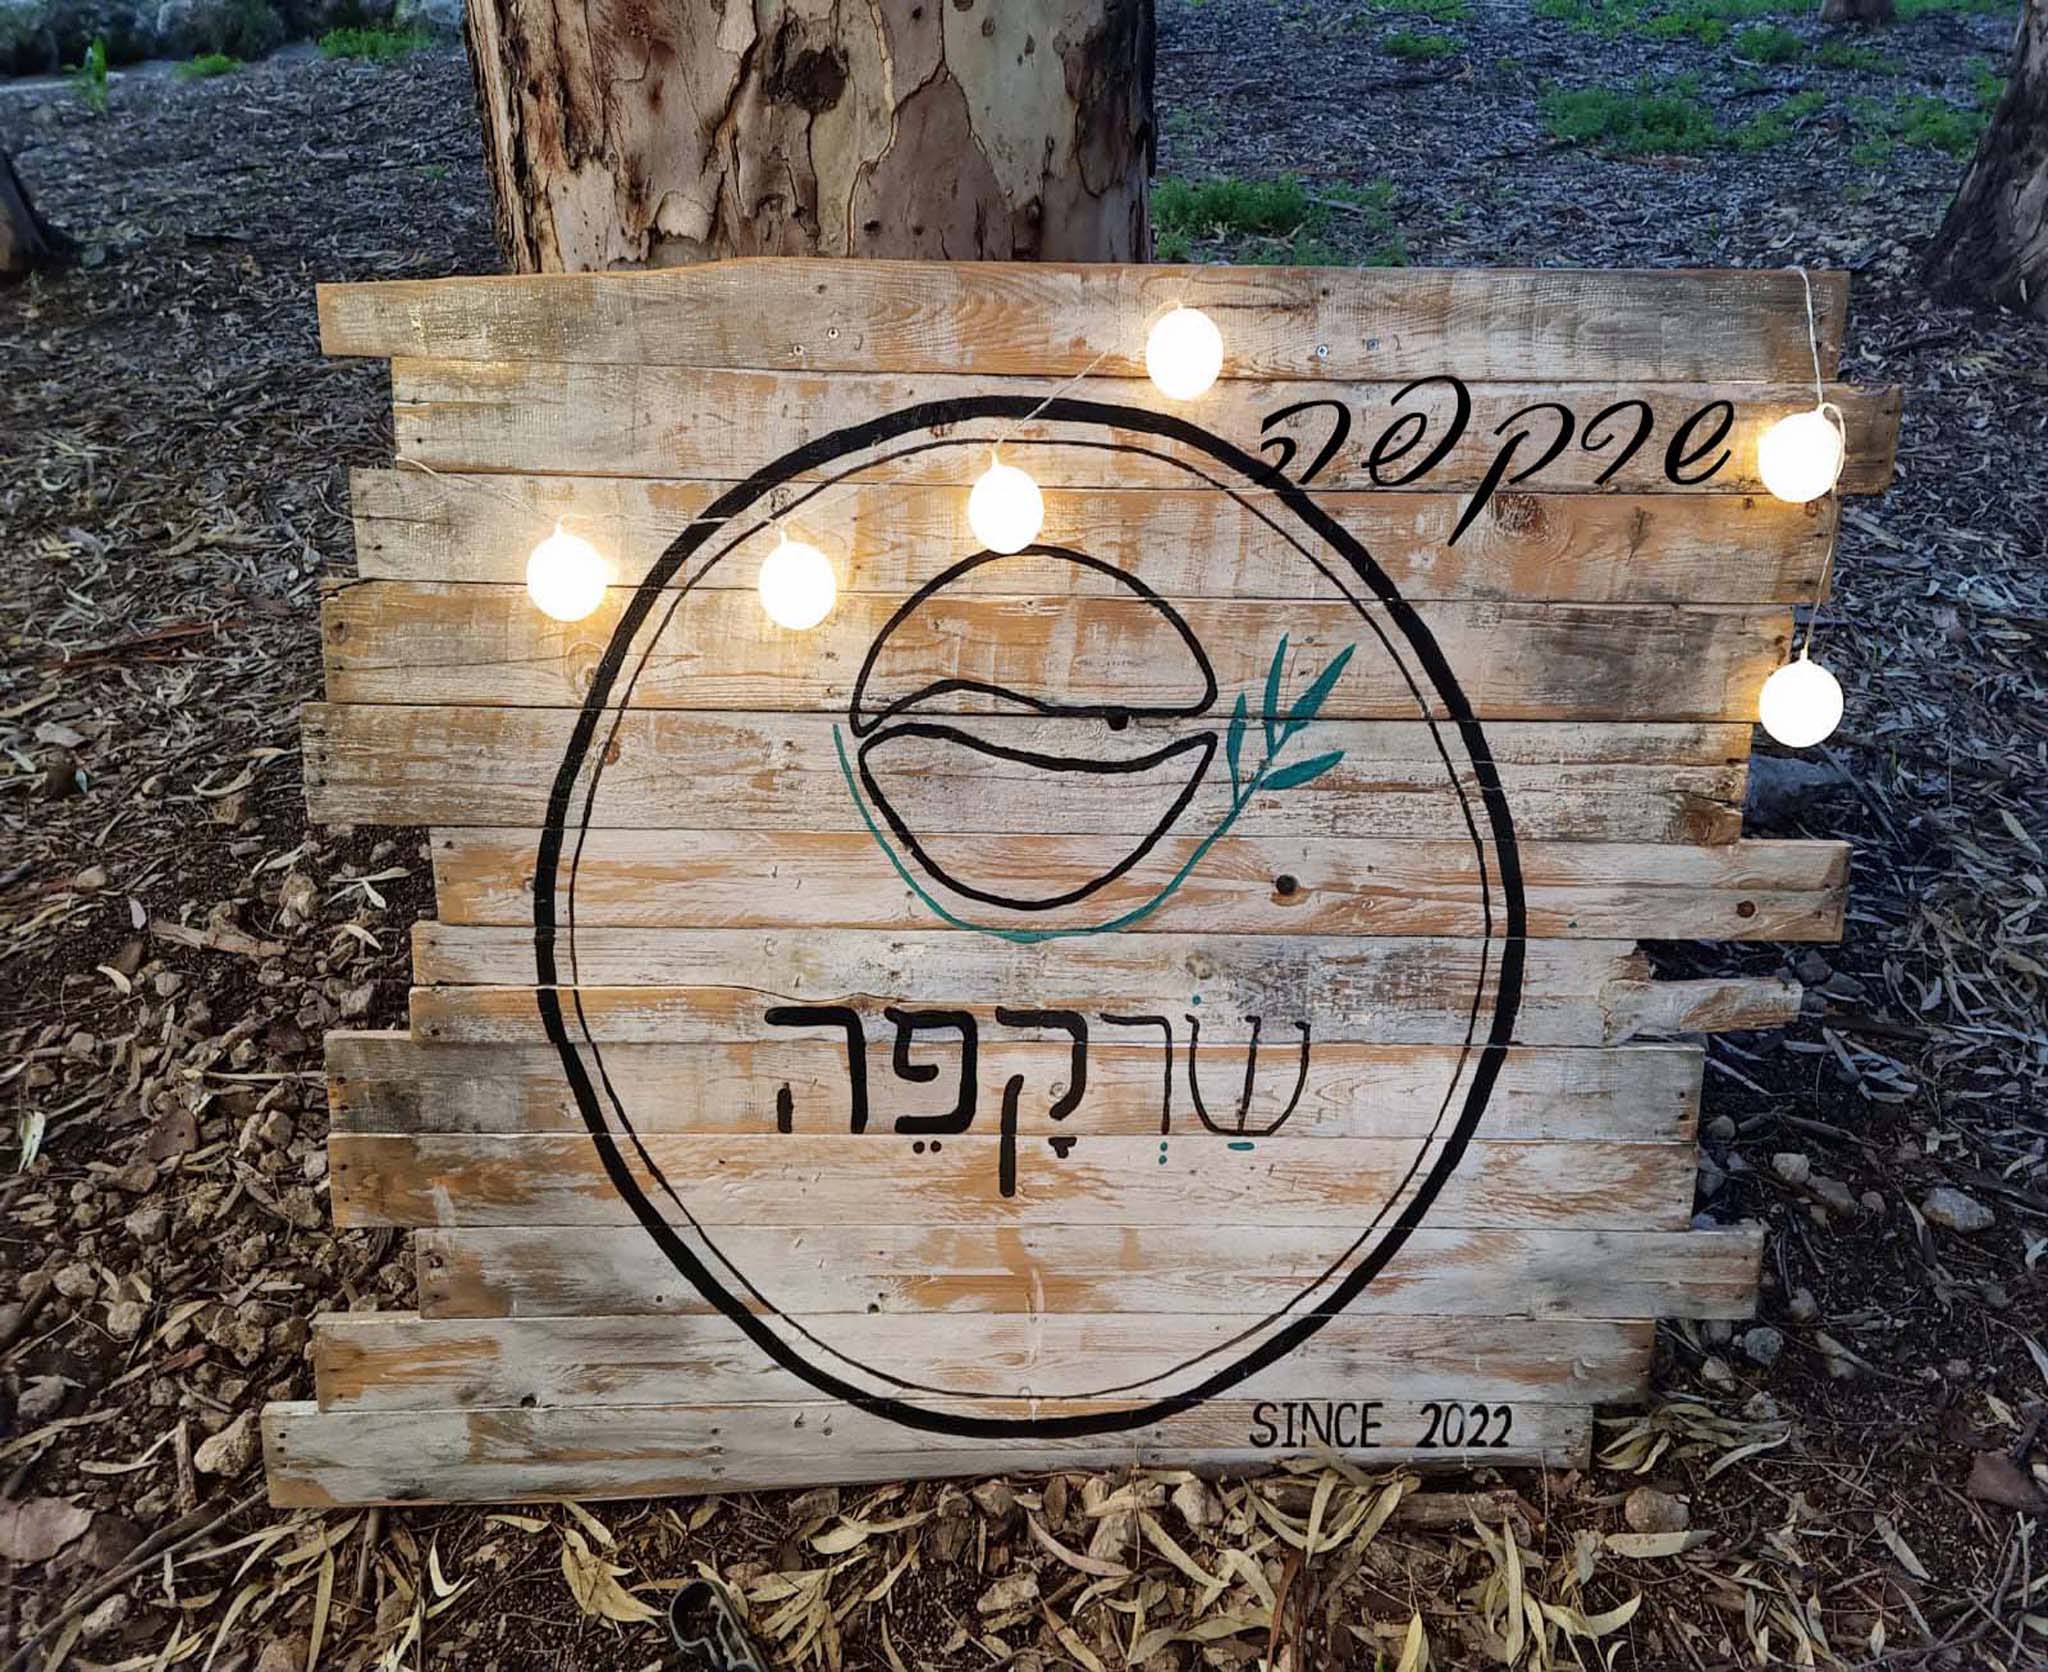 שרקפה
שַׂרְקָפֵה
SINCE 2022